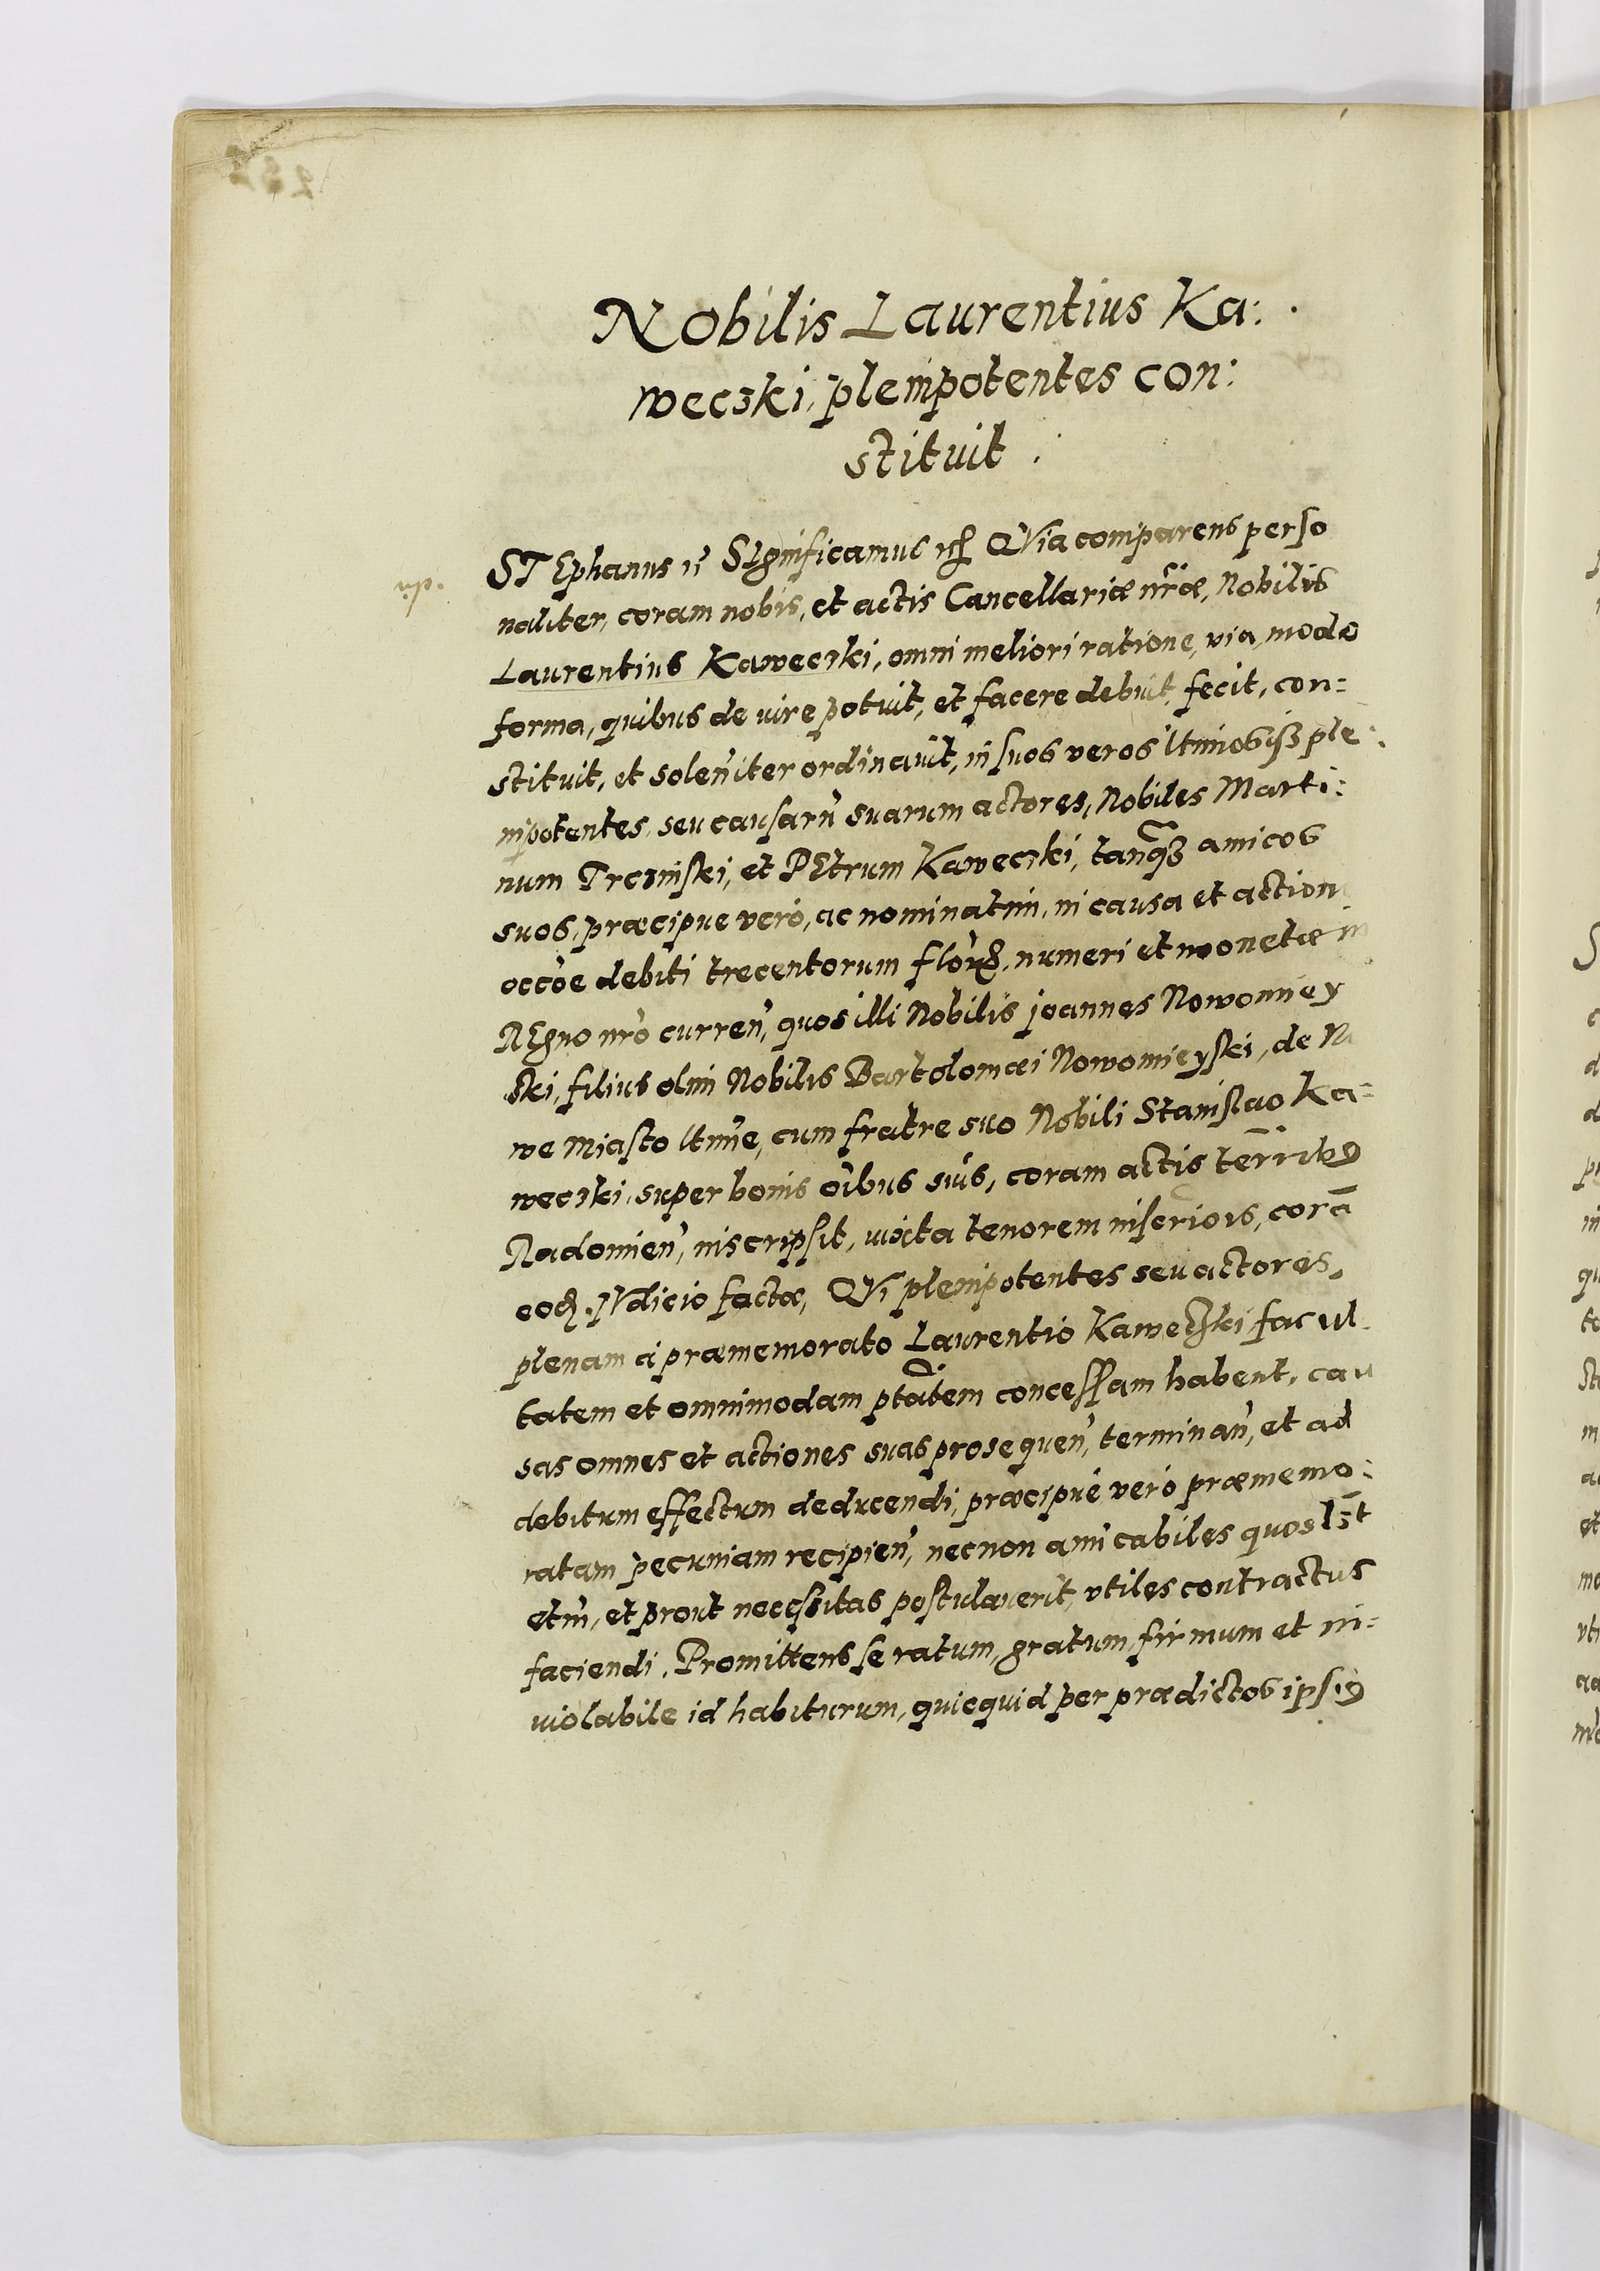 Nobilis Laurentius Ka:
wecʒki, plenipotentes con:
stituit.
STEphanus SIgnificamus QVia comparens perso
naliter, coram nobis, et actis Cancellariæ nr̃æ, Nobilis
Laurentius Kawecʒki, omni meliori ratione, via, modo
forma, quibus de iure potuit, et facere debuit, fecit, con=
stituit, et solen̄iter ordinavit, in suos veros ple:
nipotentes, seu causarū suarum actores, Nobiles Marti:
num Trcʒinski, et PEtrum Kawecʒki, tanq̃ʒ amicos
suos, præcipue vero, ac nominatim, in causa et action
occõe debiti trecentorum numeri et monetæ in
REgno nr̃o curren̄, quos illi Nobilis joannes Nowomiey
ski, filius olim Nobilis Bartolomæi Nowomieyski, de No
we Miasto cum fratre suo Nobili Stanislao Ka=
wecʒki, super bonis oībus suis, coram actis
Radomien̄, inscripsit, iuxta tenorem corā
eod. IVdicio factæ, QVi plenipotentes seu actores,
plenam a præmemorato Laurentio Kawecʒki facul
tatem et omnimodam ptātem concessam habent, cau
sas omnes et actiones suas prosequen̄, terminan̄, et ad
debitum effectum deducendi, præcipue vero præmemo:
ratam pecuniam recipien̄, necnon amicabiles quosl̄t
etm̄, et prout necessitas postulaverit, vtiles contractus
faciendi. Promittens se ratum, gratum, firmum et in=
violabile id habiturum, quicquid per prædictos ipsiꝯ